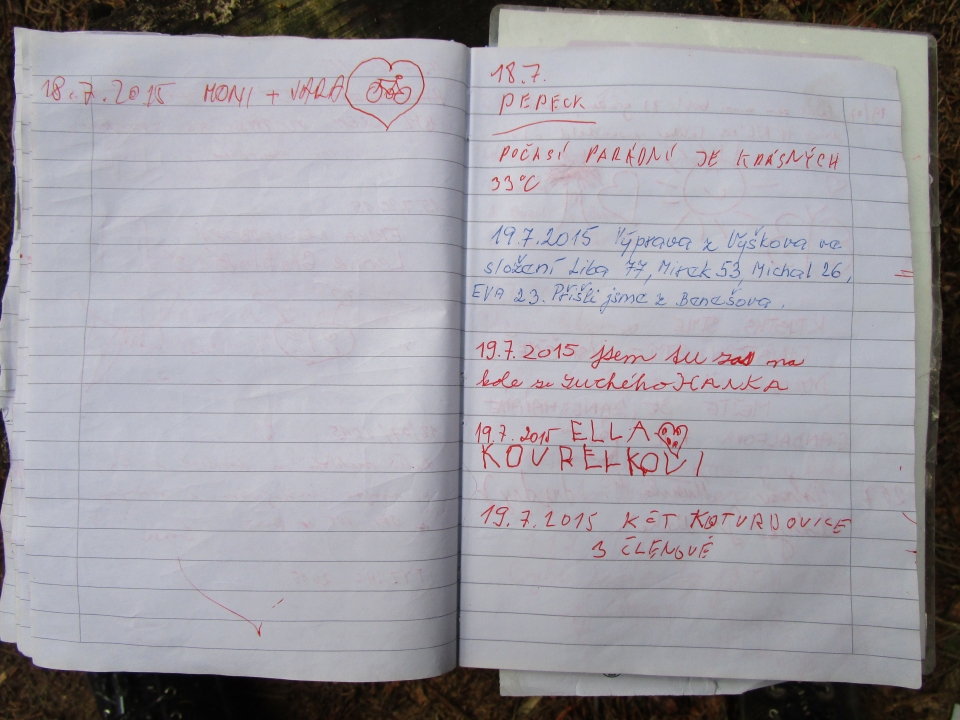 18.7.2015 MONI + VARA
18.7.
PEPECK
POČASÍ PARÁDNÍ JE KRÁSNÝCH
33°C
19.7.2015 Výprava z Vyškova ve
složení Liba 77, Mirek 53, Michal 26,
EVA 23. Přišli jsme z Benešova.
19.7.2015 jsem tu zas na
kole ze suchého HANKA
19.7.2015 ELLA
KOVRELKOVI
19.7.2015 KČT KOTVRDOVICE
3 ČLENOVÉ